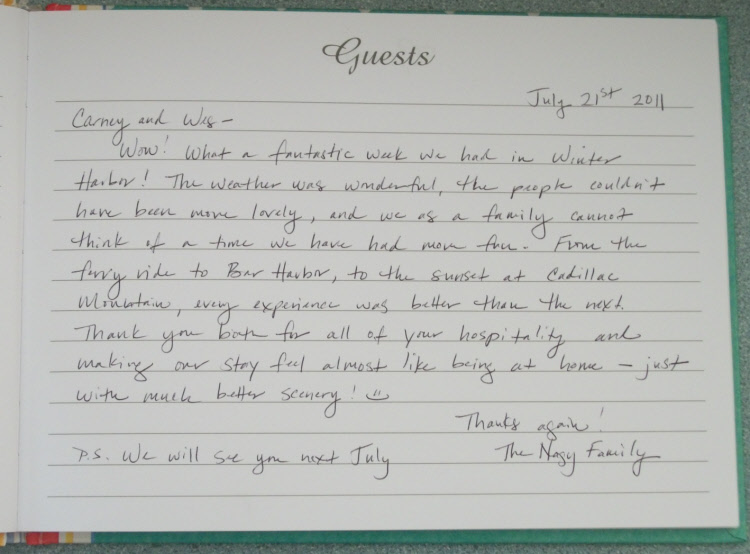 Guests
July 21st 2011
Carney and Wes -
Wow! What a fantastic week we had in Winter
Harbor! The weather was wonderful, the people couldn't
have been more lovely, and we as a family cannot
think of a time we have had more fun. From the
ferry ride to Bar Harbor, to the sunset at Cadillac
Mountain, every experience was better than the next.
Thank you both for all of your hospitality and
making our stay feel almost like being at home - just
with much better scenery! ☺
Thanks again!
P.S. We will see you next July
The Nagy Family